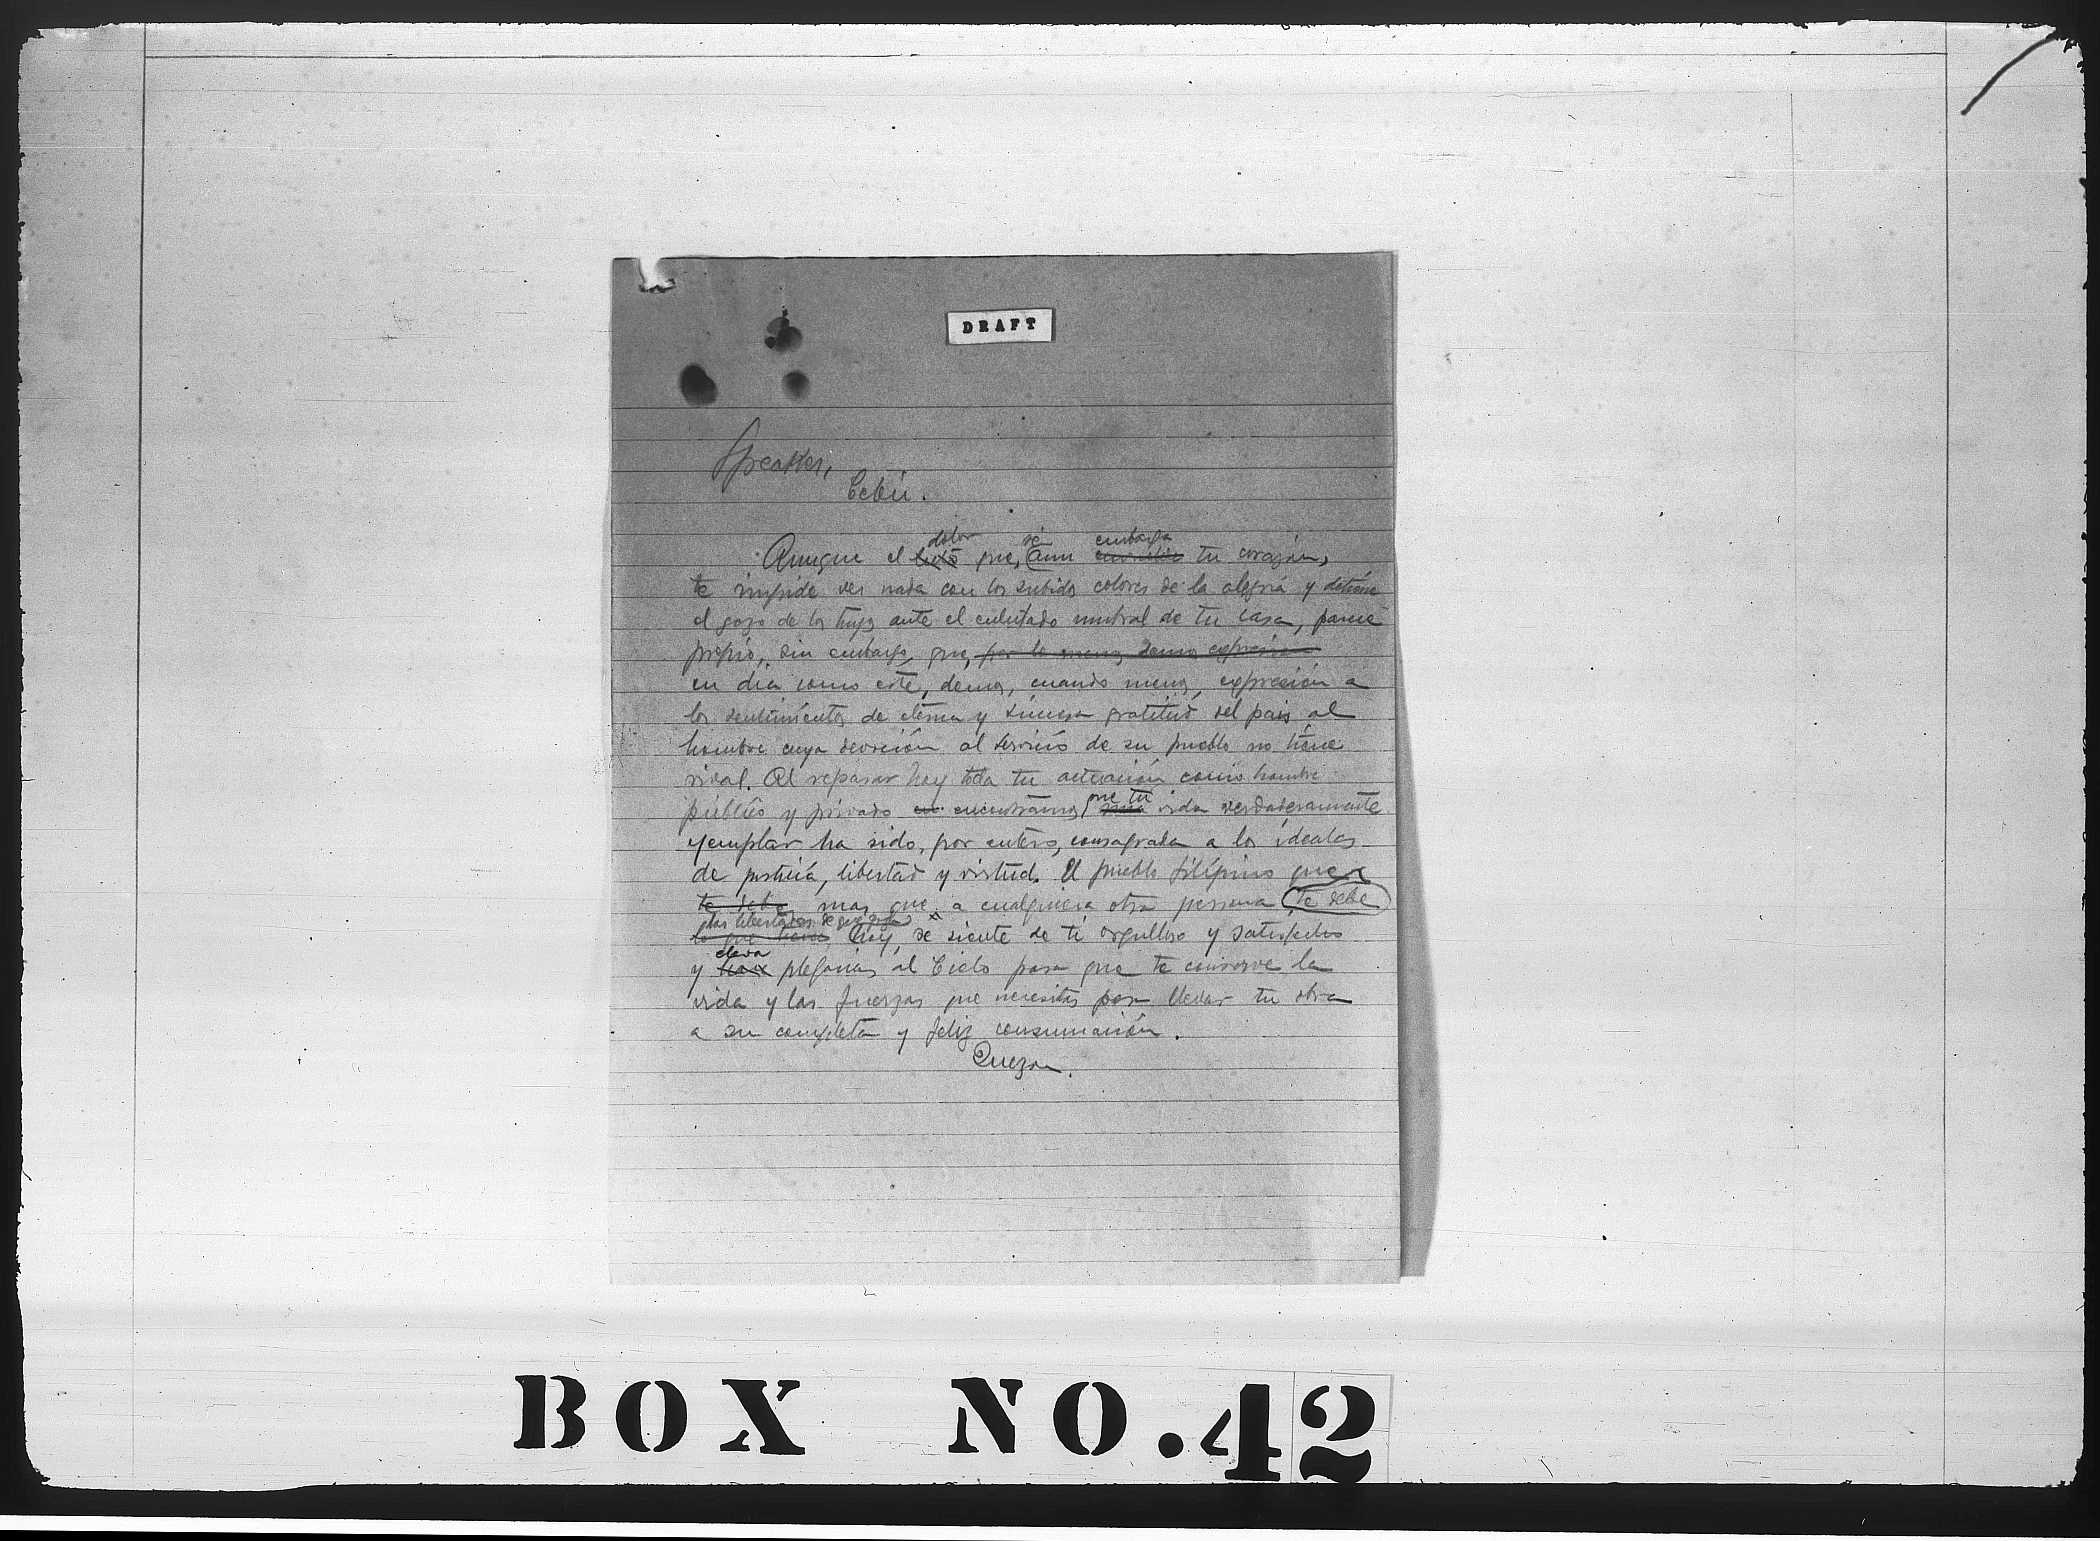 DRAFT
Speaker,
Cebú.
Aunque el luto dolor que, sé aun embarga tu corazón,
te impide ver nada con los subidos colores de la alegria y detiene
el gozo de los tuyos ante el enlutado umbral de tu casa, parece
propio, sin embargo, que, por lo menos, demos expresión
en dia como este, demos, cuando menos, expresión a
los sentimientos de eterna y sincera gratitud del pais al
hombre cuya devoción al servicio de su pueblo no tiene
rival. Al repasar hoy toda tu actuación como hombre
público y privado en encontramos que tu una vida verdaderamente
ejemplar ha sido, por entero, consagrada a los ideales
de justicia, libertad y virtud. El pueblo filipino que
te debe mas que a cualquiera otra persona te debe
las libertades de que goza
lo que tiene hoy, se siente de ti orgulloso y satisfecho
y eleva plegarias al Cielo para que te conserve la
vida y las fuerzas que necesitas para llevar tu obra
a su completa y feliz consumación.
Quezon.
BOX NO. 42